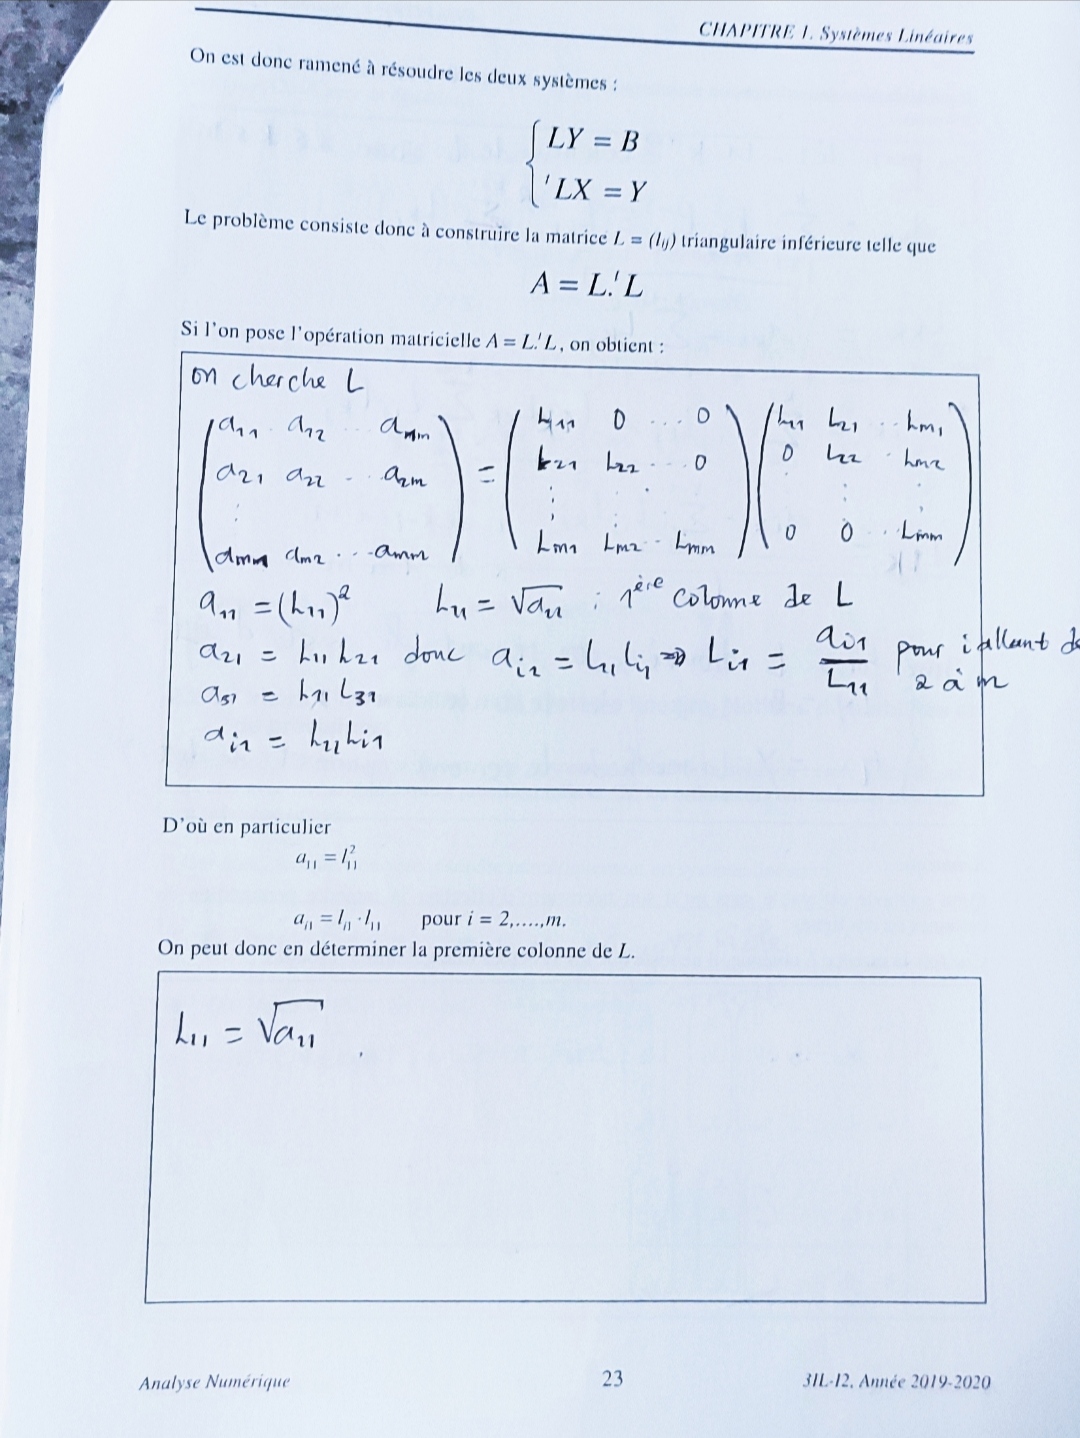 CHAPITRE 1. Systèmes Linéaires
On est donc ramené à résoudre les deux systèmes :
LY = B
ᵗLX = Y
Le problème consiste donc à construire la matrice L = (lᵢⱼ) triangulaire inférieure telle que
A = L.ᵗL
Si l'on pose l'opération matricielle A = L.ᵗL, on obtient :
on cherche L
(a₁₁ a₁₂ ... a₁ₘ) = (L₁₁ 0 ... 0) (L₁₁ L₂₁ ... Lm₁)
(a₂₁ a₂₂ ... a₂ₘ) (L₂₁ L₂₂ ... 0) (0 L₂₂ ... Lm₂)
(am₁ am₂ ... amm) (Lm₁ Lm₂ ... Lmm) (0 0 ... Lmm)
a₁₁ = (L₁₁)² L₁₁ = √a₁₁ : 1ère colonne de L
a₂₁ = L₁₁ L₂₁ donc aᵢ₁ = L₁₁ Lᵢ₁ => Lᵢ₁ = aᵢ₁ / L₁₁ pour i allant de 2 à m
a₃₁ = L₁₁ L₃₁
aᵢ₁ = L₁₁ Lᵢ₁
D'où en particulier
a₁₁ = l₁₁²
aᵢ₁ = lᵢ₁ · l₁₁ pour i = 2,....,m.
On peut donc en déterminer la première colonne de L.
L₁₁ = √a₁₁
Analyse Numérique 23 3IL-I2, Année 2019-2020